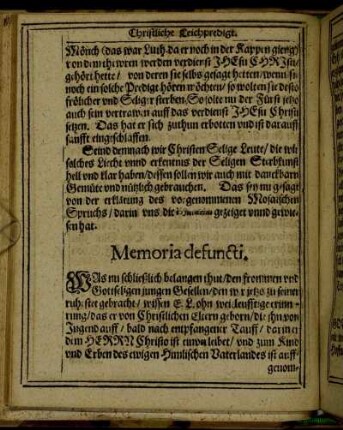 Christliche Leichpredigt.
Mönch (das war Luth. da er noch in der Kappen gieng)
von dem thewren werden verdienst JHEsu CHRIsti
gehört hette / von deren sie selbs gesagt hetten / wenn sie
noch ein solche Predigt hören möchten / so wolten sie desto
frölicher vnd Seliger sterben / So solte nu der Fürst jetzo
auch sein vertrawen auff das verdienst JHEsu Christi
setzen. Das hat er sich zuthun erbotten vnd ist darauff
sanfft eingeschlaffen.
Seind demnach wir Christen Selige Leute / die wir
solches Liecht vnnd erkentnus der Seligen Sterbkunst
hell vnd klar haben / dessen sollen wir auch mit danckbarn
Gemüte vnd nützlich gebrauchen. Das sey nu gesagt
von der erklärung des vorgenommenen Mosaischen
Spruchs / darin vns die gezeiget vnnd gewie-
sen hat.
Memoria defuncti.
WAs nu schließlich belangen thut / den frommen vnd
Gottseligen jungen Gesellen / den wir jetzo zu seinem
ruhbettet gebracht / wissen E. L. ohn weitleufftige erinne-
rung / das er von Christlichen Eltern geborn / die jhn von
Jugend auff / bald nach entpfangener Tauff / darin er
dem HERRN Christo ist einverleibet / vnd zum Kind
vnd Erben des ewigen Himlischen Vaterlandes ist auff-
genom-